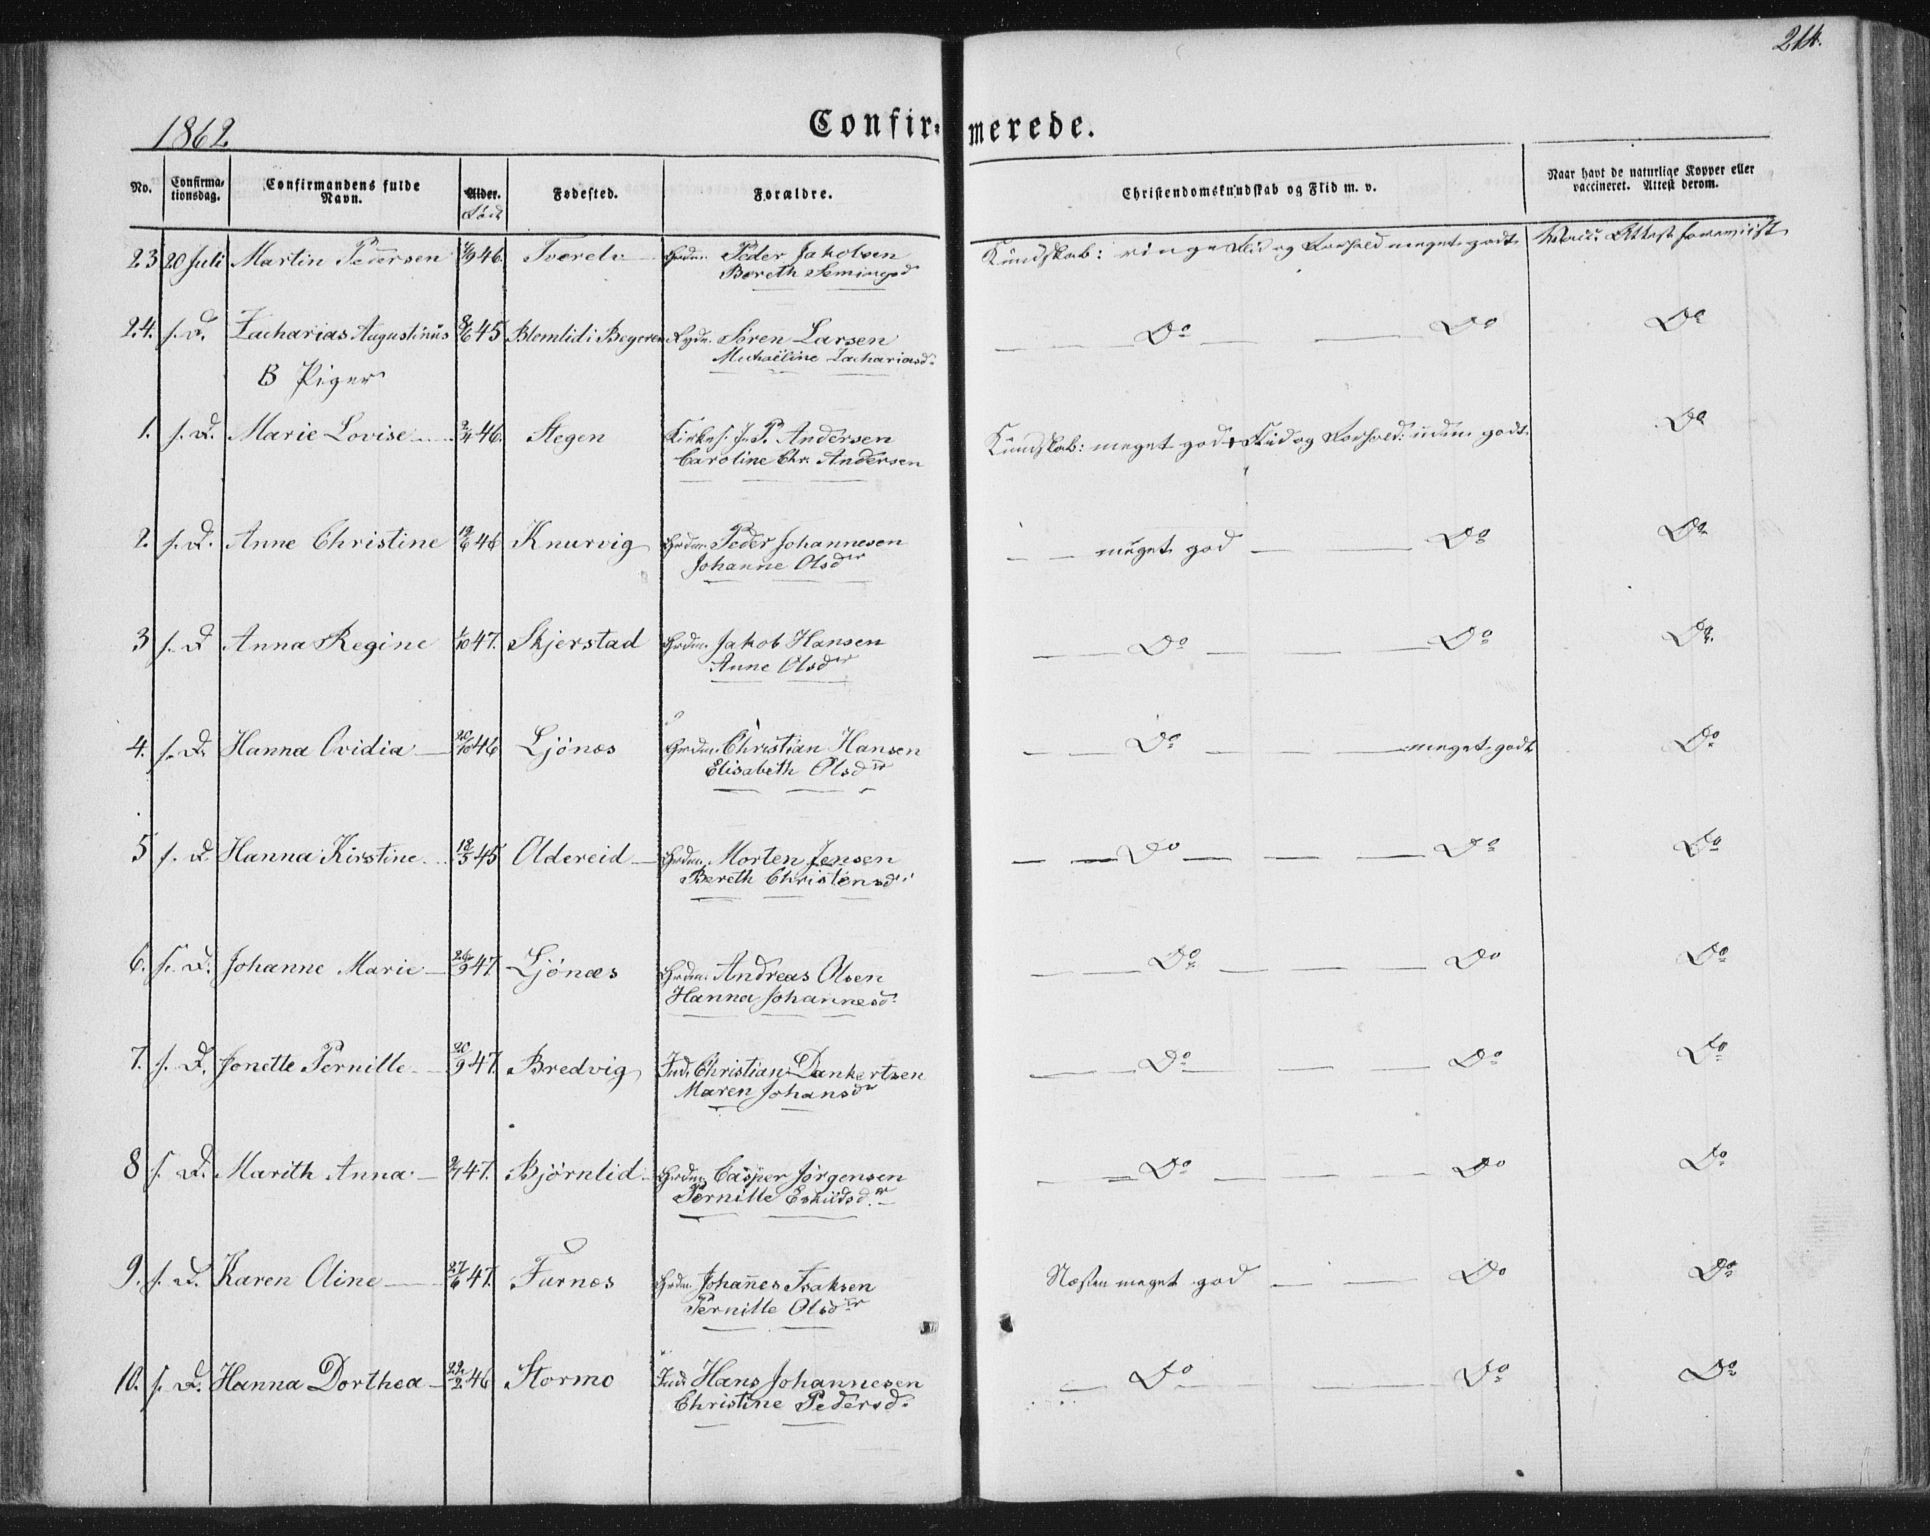 214.
1862
Confir= merede.
No. Confirma= tionsdag. Confirmandens fulde Navn. Alder. Født Fødested. Forældre. Christendomskundskab og Flid m. v. Naar havt de naturlige Kopper eller vaccineret. Attest derom.
23 20 Juli Martin Pedersen 46. Tverelv Grdm. Peder Jakobsen Kundskab: ringe Flid og Forhold meget godt Vacc: Attest foreviist
Bereth Semingsd
24. s. D. Zacharias Augustinus 45 Blomlid i Begeren Rydn. Søren Larsen Do Do Do
Michaëline Zachariasd.
B Piger
1. s. D. Marie Lovise 46. Stegen Kirkes. J. P. Andersen Kundskab: meget god Flid og Forhold: udm. godt. Do
Caroline Chr. Andersen
2. s. D. Anne Christine 19/6 46 Knurvig Grdm. Peder Johannesen meget god Do Do
Johanne Olsdr
3 s. D Anna Regine 1/10 47. Skjerstad Grdm. Jakob Hansen Do Do Do.
Anne Olsdr
4. s. D. Hanna Ovidia 20/10 46 Ljönes Grdm. Christian Hansen Do meget godt Do
Elisabeth Olsdtr
5 s. D. Hanna Kirstine 18/5 45 Oldereid Grdm. Morten Jensen Do Do Do
Bereth Christensd.
6. s. D. Johanne Marie 26/9 47 Ljönæs Grdm. Andreas Olsen Do Do Do
Hanna Johannesd.
7. s. D. Jonette Pernille 20/9 47. Bredvig Ind. Christian Dankertsen Do Do Do
Maren Johansdr
8 s. D. Marith Anna 47. Björnlid Grdm. Casper Jørgensen Do Do Do
Pernille Eskildsd.r
9. s. D. Karen Oline 27/6 47. Furnes Grdm. Johannes Isaksen Næsten meget god Do Do
Pernille Olsdtr
10. s. D. Hanna Dorthea 22/2 46 Stormo Ind. Hans Johannesen Do Do Do
Christine Pedersd.